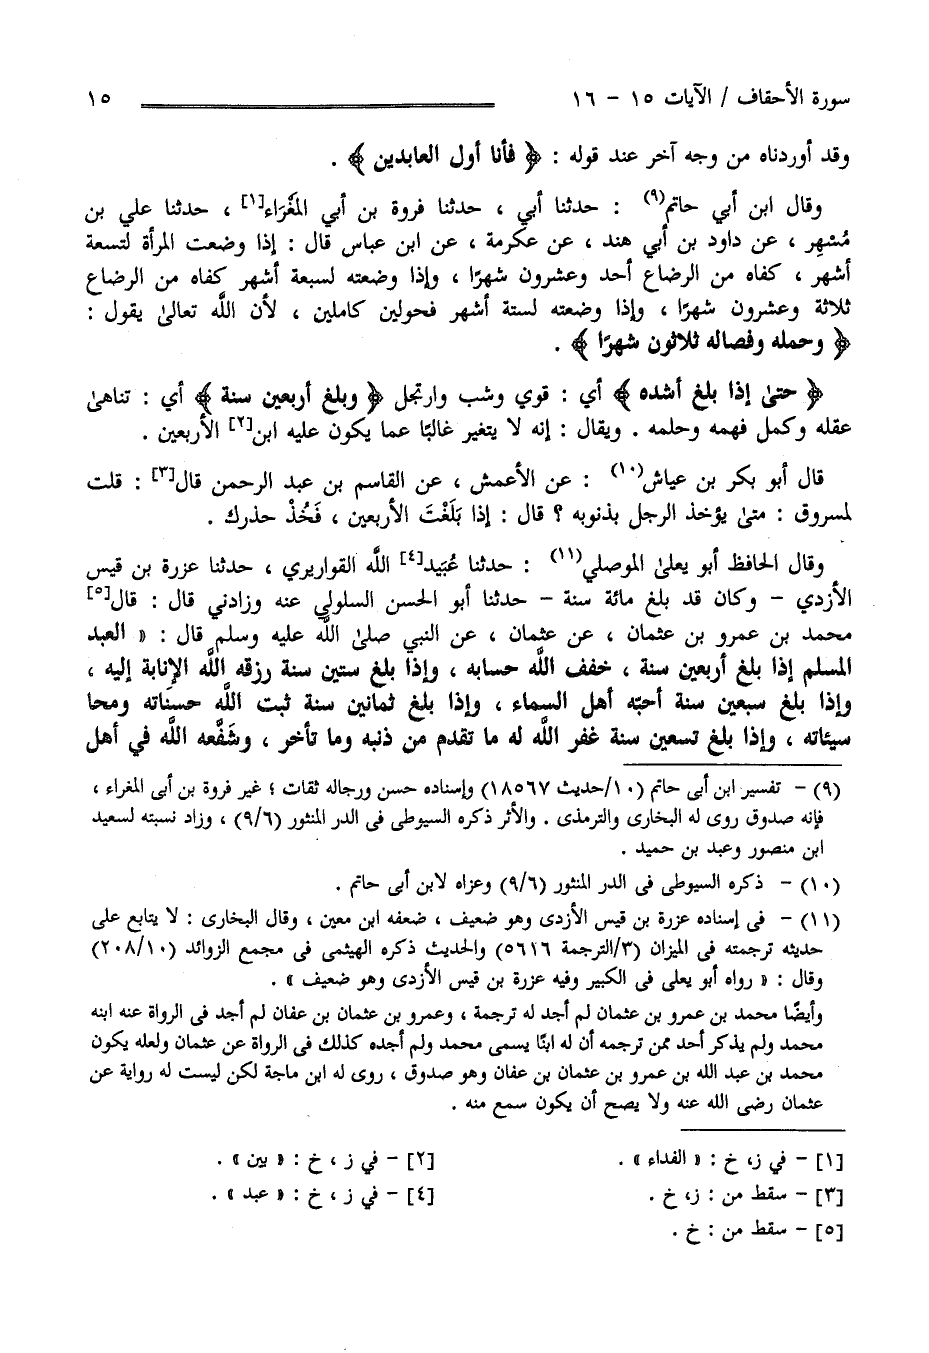 سورة الأحقاف / الآيات ١٥ - ١٦ ١٥
وقد أوردناه من وجه آخر عند قوله : ﴿ فأنا أول العابدين ﴾ .
وقال ابن أبي حاتم(٩) : حدثنا أبي ، حدثنا فروة بن أبي المَغْرَاء[١] ، حدثنا علي بن
مُسْهِر ، عن داود بن أبي هند ، عن عكرمة ، عن ابن عباس قال : إذا وضعت المرأة لتسعة
أشهر ، كفاه من الرضاع أحد وعشرون شهرًا ، وإذا وضعته لسبعة أشهر كفاه من الرضاع
ثلاثة وعشرون شهرًا ، وإذا وضعته لستة أشهر فحولين كاملين ، لأن اللَّه تعالىٰ يقول :
﴿ وحمله وفصاله ثلاثون شهرًا ﴾ .
﴿ حتىٰ إذا بلغ أشده ﴾ أي : قوي وشب وارتجل ﴿ وبلغ أربعين سنة ﴾ أي : تناهىٰ
عقله وكمل فهمه وحلمه . ويقال : إنه لا يتغير غالبًا عما يكون عليه ابن[٢] الأربعين .
قال أبو بكر بن عياش(١٠) : عن الأعمش ، عن القاسم بن عبد الرحمن قال[٣] : قلت
لمسروق : متىٰ يؤخذ الرجل بذنوبه ؟ قال : إذا بَلَغْتَ الأربعين ، فَخُذْ حذرك .
وقال الحافظ أبو يعلىٰ الموصلي(١١) : حدثنا عُبَيد[٤] اللَّه القواريري ، حدثنا عزرة بن قيس
الأزدي - وكان قد بلغ مائة سنة - حدثنا أبو الحسن السلولي عنه وزادني قال : قال[٥]
محمد بن عمرو بن عثمان ، عن عثمان ، عن النبي صلىٰ اللَّه عليه وسلم قال : « العبد
المسلم إذا بلغ أربعين سنة ، خفف اللَّه حسابه ، وإذا بلغ ستين سنة رزقه اللَّه الإنابة إليه ،
وإذا بلغ سبعين سنة أحبّه أهل السماء ، وإذا بلغ ثمانين سنة ثبت اللَّه حسنَاته ومحا
سيئاته ، وإذا بلغ تسعين سنة غفر اللَّه له ما تقدم من ذنبه وما تأخر ، وشفَّعه اللَّه في أهل
(٩) - تفسير ابن أبى حاتم (١٠/حديث ١٨٥٦٧) وإسناده حسن ورجاله ثقات ؛ غير فروة بن أبى المغراء ،
فإنه صدوق روى له البخارى والترمذى . والأثر ذكره السيوطى فى الدر المنثور (٩/٦) ، وزاد نسبته لسعيد
ابن منصور وعبد بن حميد .
(١٠) - ذكره السيوطى فى الدر المنثور (٩/٦) وعزاه لابن أبى حاتم .
(١١) - فى إسناده عزرة بن قيس الأزدى وهو ضعيف ، ضعفه ابن معين ، وقال البخارى : لا يتابع على
حديثه ترجمته فى الميزان (٣/الترجمة ٥٦١٦) والحديث ذكره الهيثمى فى مجمع الزوائد (٢٠٨/١٠)
وقال : « رواه أبو يعلى فى الكبير وفيه عزرة بن قيس الأزدى وهو ضعيف » .
وأيضًا محمد بن عمرو بن عثمان لم أجد له ترجمة ، وعمرو بن عثمان بن عفان لم أجد فى الرواة عنه ابنه
محمد ولم يذكر أحد ممن ترجمه أن له ابنًا يسمى محمد ولم أجده كذلك فى الرواة عن عثمان ولعله يكون
محمد بن عبد الله بن عمرو بن عثمان بن عفان وهو صدوق ، روى له ابن ماجة لكن ليست له رواية عن
عثمان رضى الله عنه ولا يصح أن يكون سمع منه .
[١] - في ز، خ : « الفداء » . [٢] - في ز ، خ : « بين » .
[٣] - سقط من : ز، خ . [٤] - في ز ، خ : « عبد » .
[٥] - سقط من : خ .